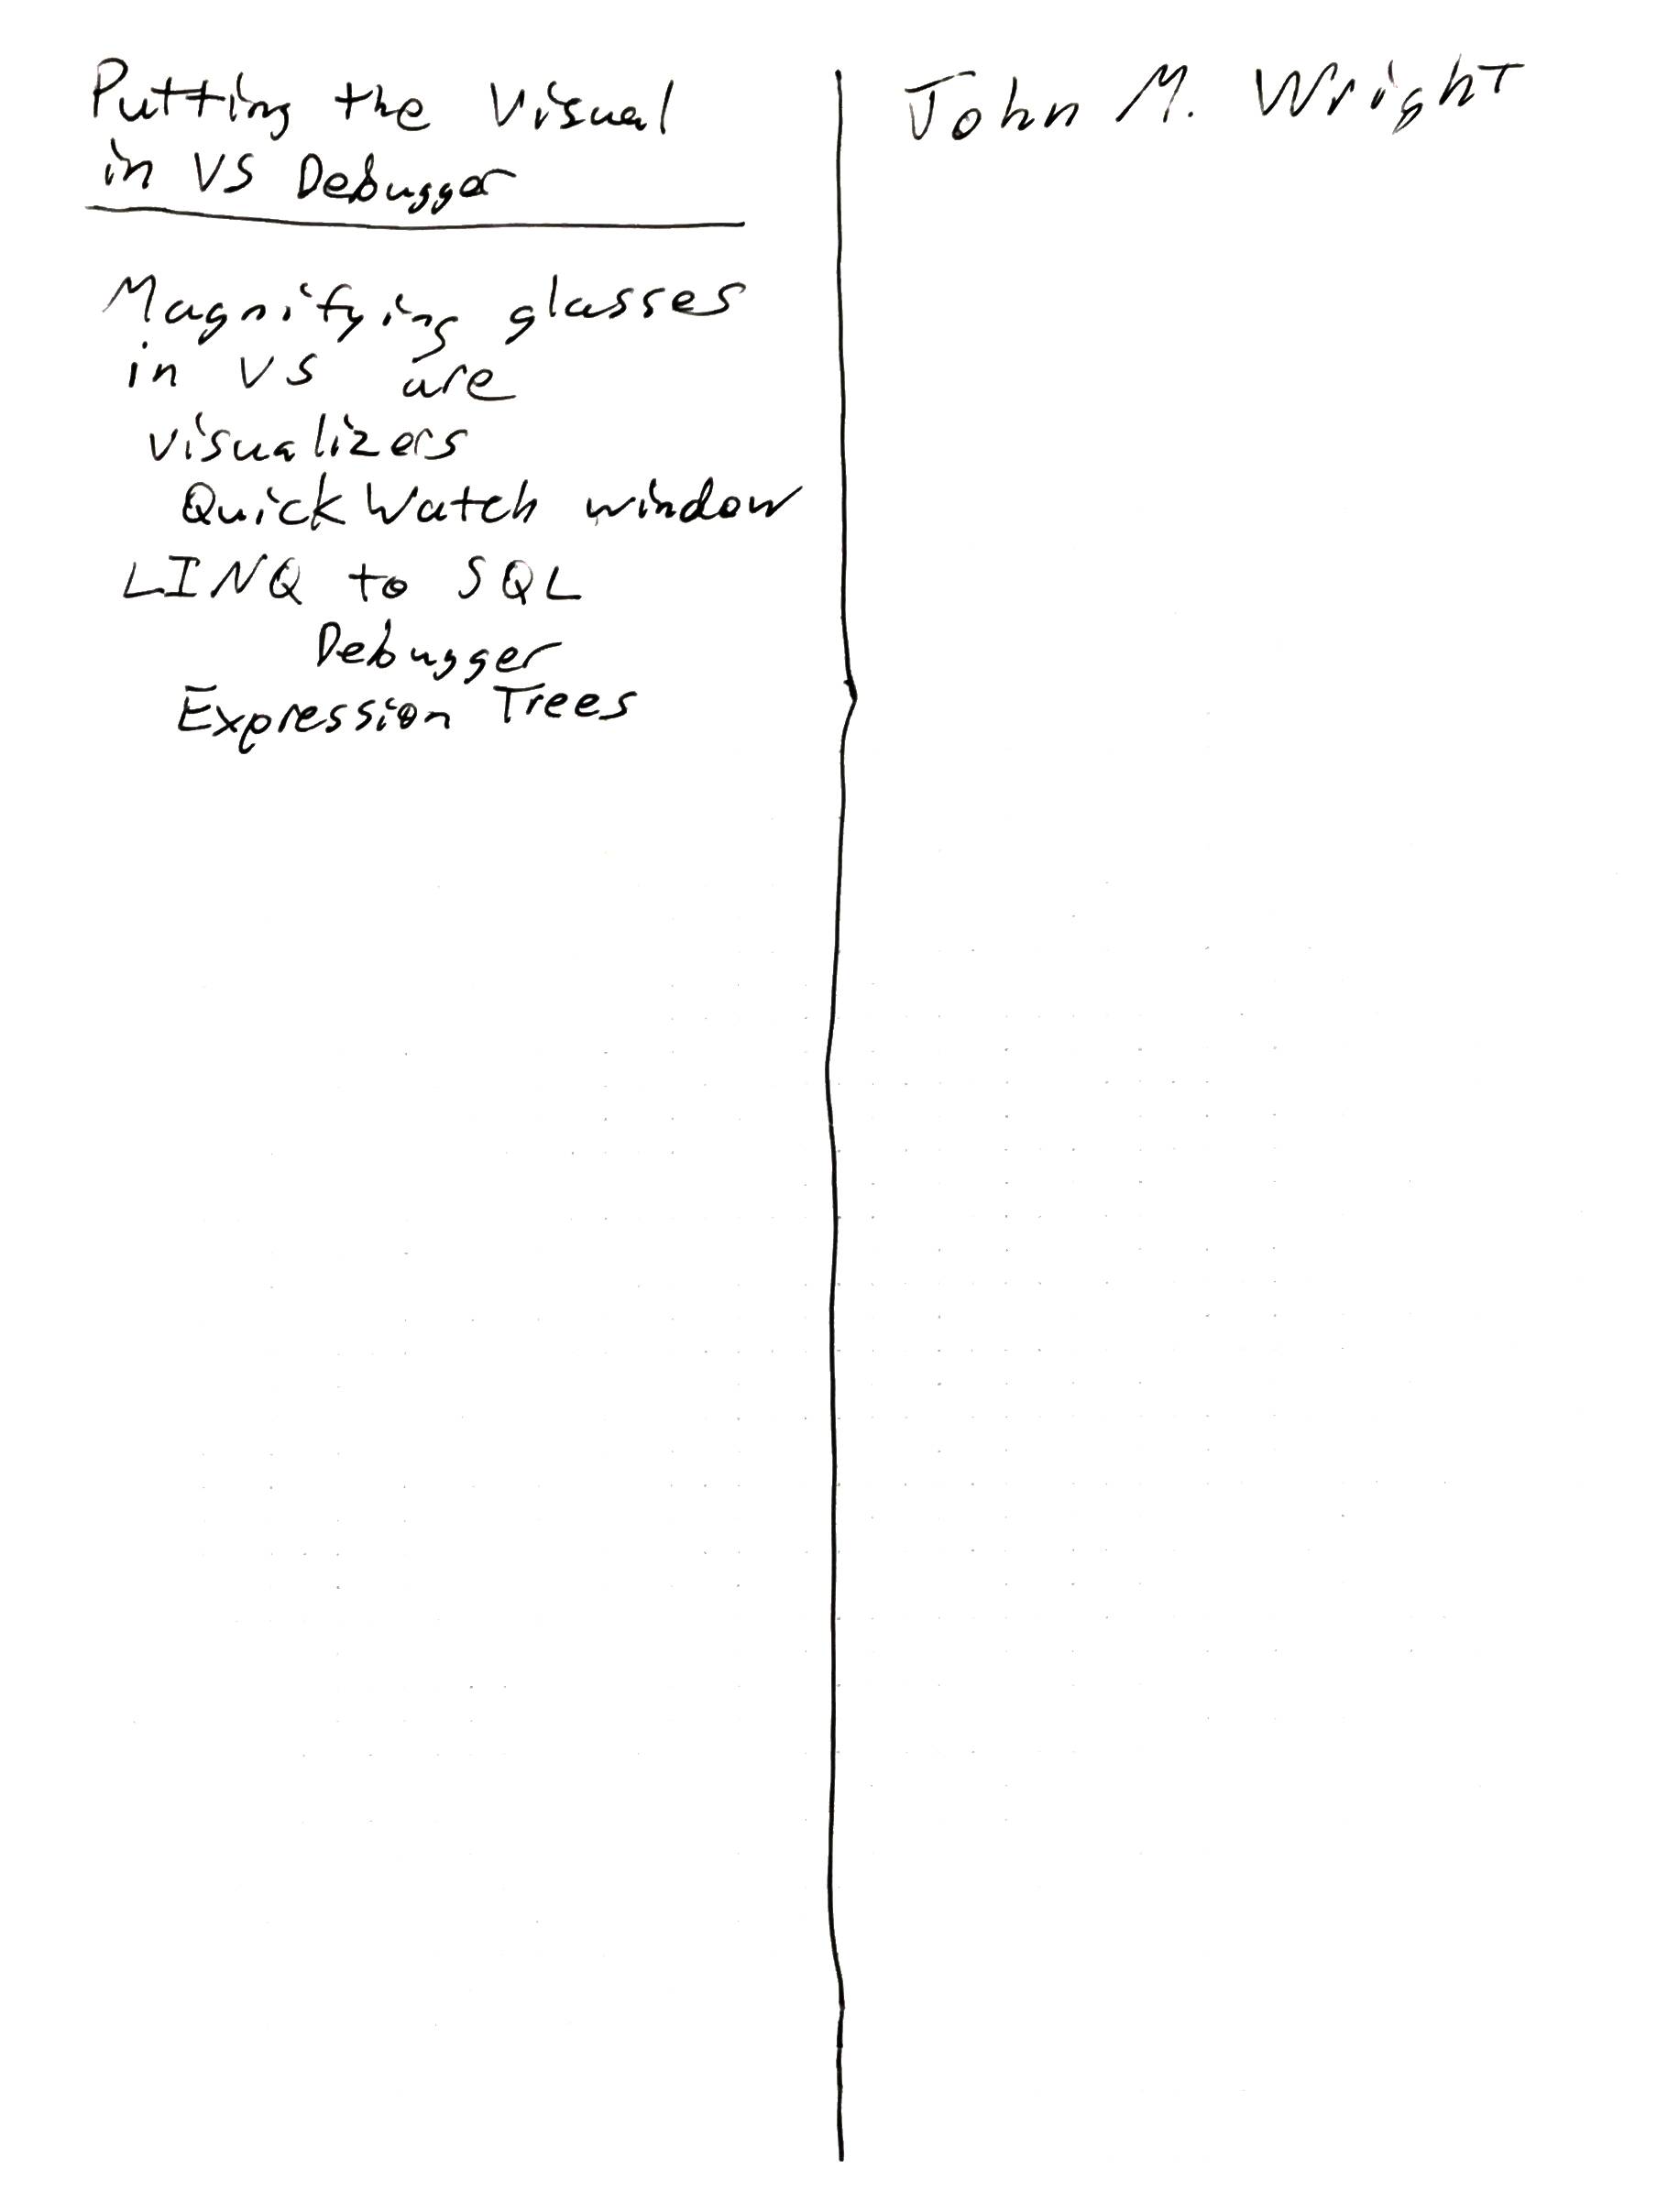 Putting the Visual
in VS Debugger
Magnifying glasses
in VS are
visualizers
QuickWatch window
LINQ to SQL
Debugger
Expression Trees
John M. Wright